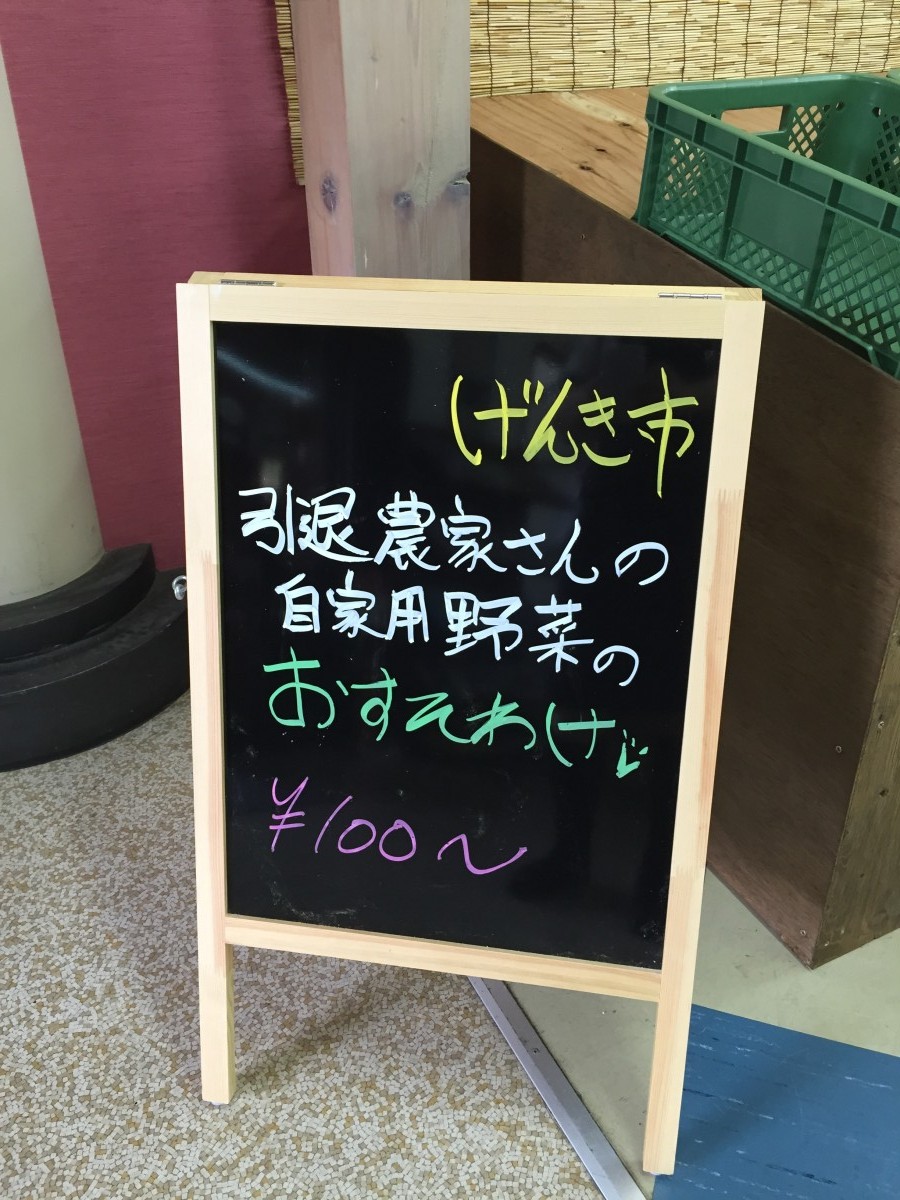 げんき市
引退農家さんの
自家用野菜の
おすそわけ
¥100〜